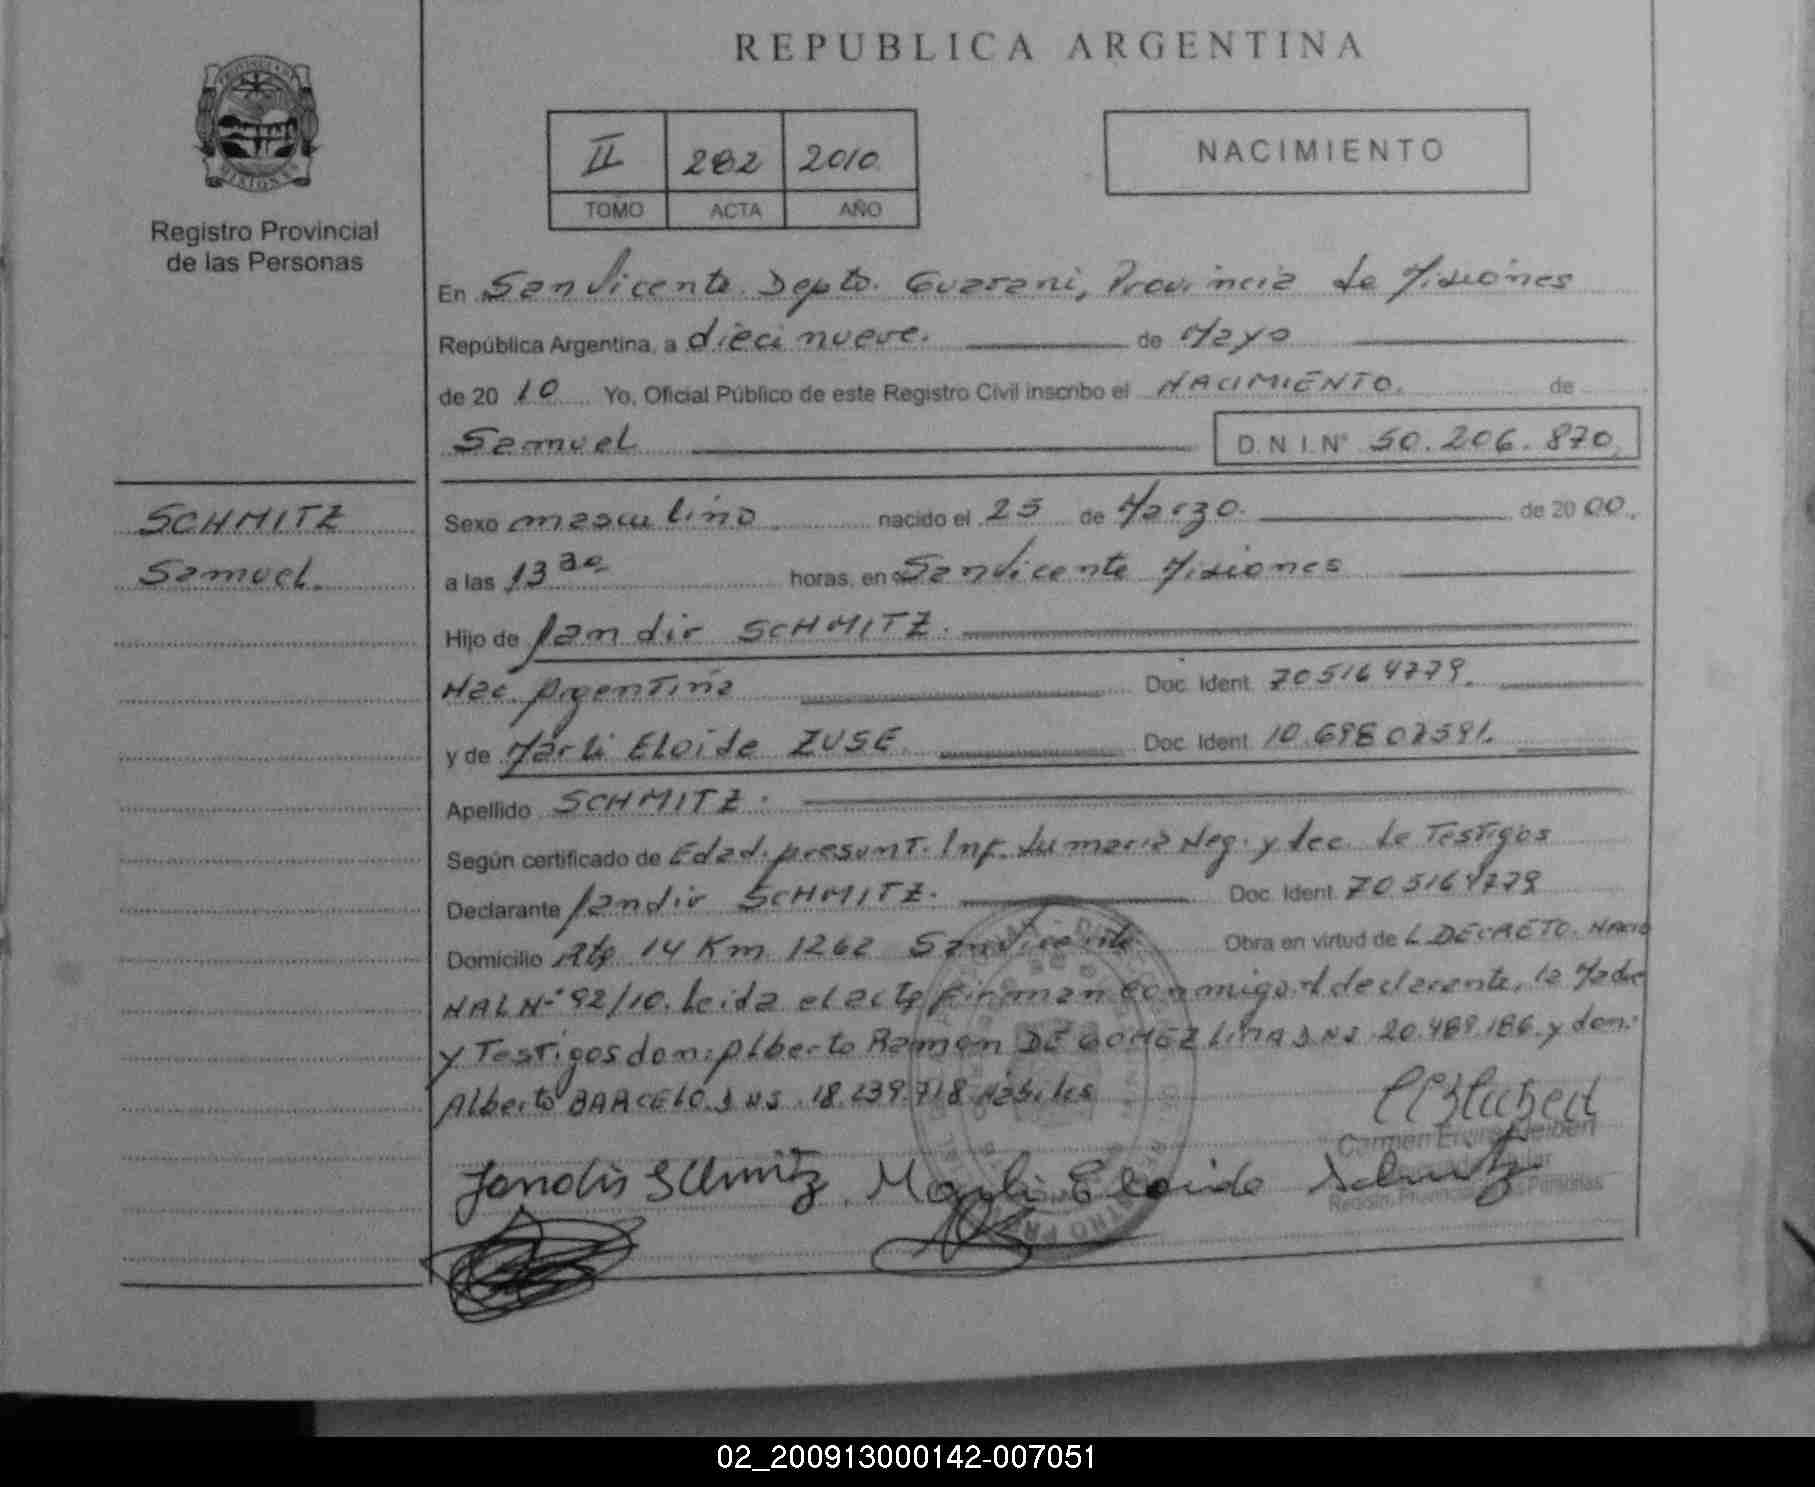 REPUBLICA ARGENTINA
PROVINCIA DE
MISIONES
Registro Provincial
de las Personas
II 282 2010
TOMO ACTA AÑO
NACIMIENTO
En San Vicente Depto. Guarani, Provincia de Misiones
República Argentina, a dieci nueve. de Mayo
de 20 10 Yo, Oficial Público de este Registro Civil inscribo el NACIMIENTO. de
Samuel D.N.I.Nº 50.206.870
SCHMITZ
Samuel.
Sexo masculino nacido el 25 de Marzo. de 20 00.
a las 13 horas, en San Vicente Misiones
Hijo de Jandir SCHMITZ.
Nac. Argentina Doc. Ident. 705164779.
y de Marli Eloide ZUSE Doc. Ident. 10.69807591.
Apellido SCHMITZ.
Según certificado de Edad. presunt. Inf. Sumaria Neg. y dec. de Testigos
Declarante Jandir SCHMITZ. Doc. Ident. 705164779
Domicilio Rta 14 Km 1262 San Vicente Obra en virtud de L DECRETO. NACIO
NAL Nº 92/10. Leida el acta firman conmigo el declarante, la Madre
y Testigos don: Alberto Ramon DE GOMEZ LIMA DNI 20.489.186. y don:
Alberto BARCELO. DNI. 18.239.718 Habiles
Carmen
Jandir Schmitz Marli Eloide Schmitz
02_200913000142-007051